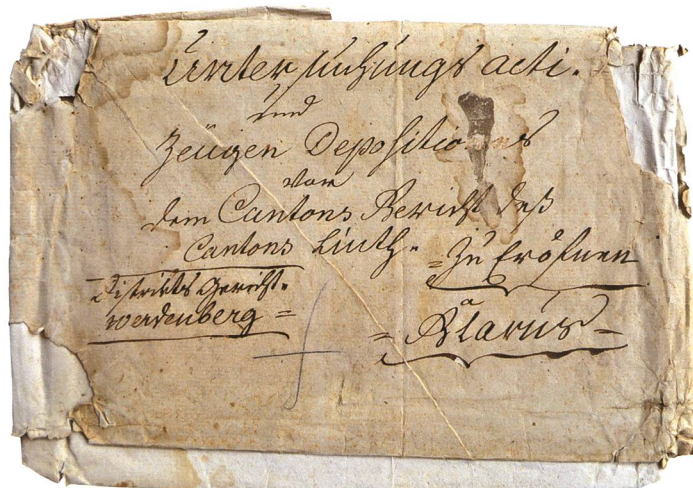 Untersuchungs acti.
und
Zeügen Depositiones
vor
dem Cantons Gericht deß
Cantons Linth.
= Zu Eröfnen
Districts Gericht.
Werdenberg =
à
= Glarus =